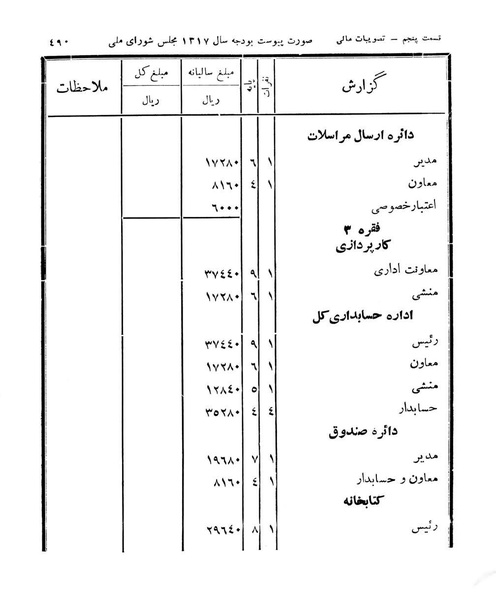 قسمت پنجم – تصویبات مالی صورت پیوست بودجه سال ۱۳۱۷ مجلس شورای ملی ٤٩٠
گزارش نفرات پایه مبلغ سالیانه ریال مبلغ کل ریال ملاحظات
دائره ارسال مراسلات
مدیر ۱ ٦ ۱۷۲۸۰
معاون ۱ ٤ ۸۱٦۰
اعتبار خصوصی ٦۰۰۰
فقره ۳
کارپردازی
معاونت اداری ۱ ۹ ۳۷٤٤۰
منشی ۱ ٦ ۱۷۲۸۰
اداره حسابداری کل
رئیس ۱ ۹ ۳۷٤٤۰
معاون ۱ ٦ ۱۷۲۸۰
منشی ۱ ٥ ۱۲۸٤۰
حسابدار ٤ ٤ ۳٥۲۸۰
دائره صندوق
مدیر ۱ ۷ ۱۹٦۸۰
معاون و حسابدار ۱ ٤ ۸۱٦۰
کتابخانه
رئیس ۱ ۸ ۲۹٦٤۰